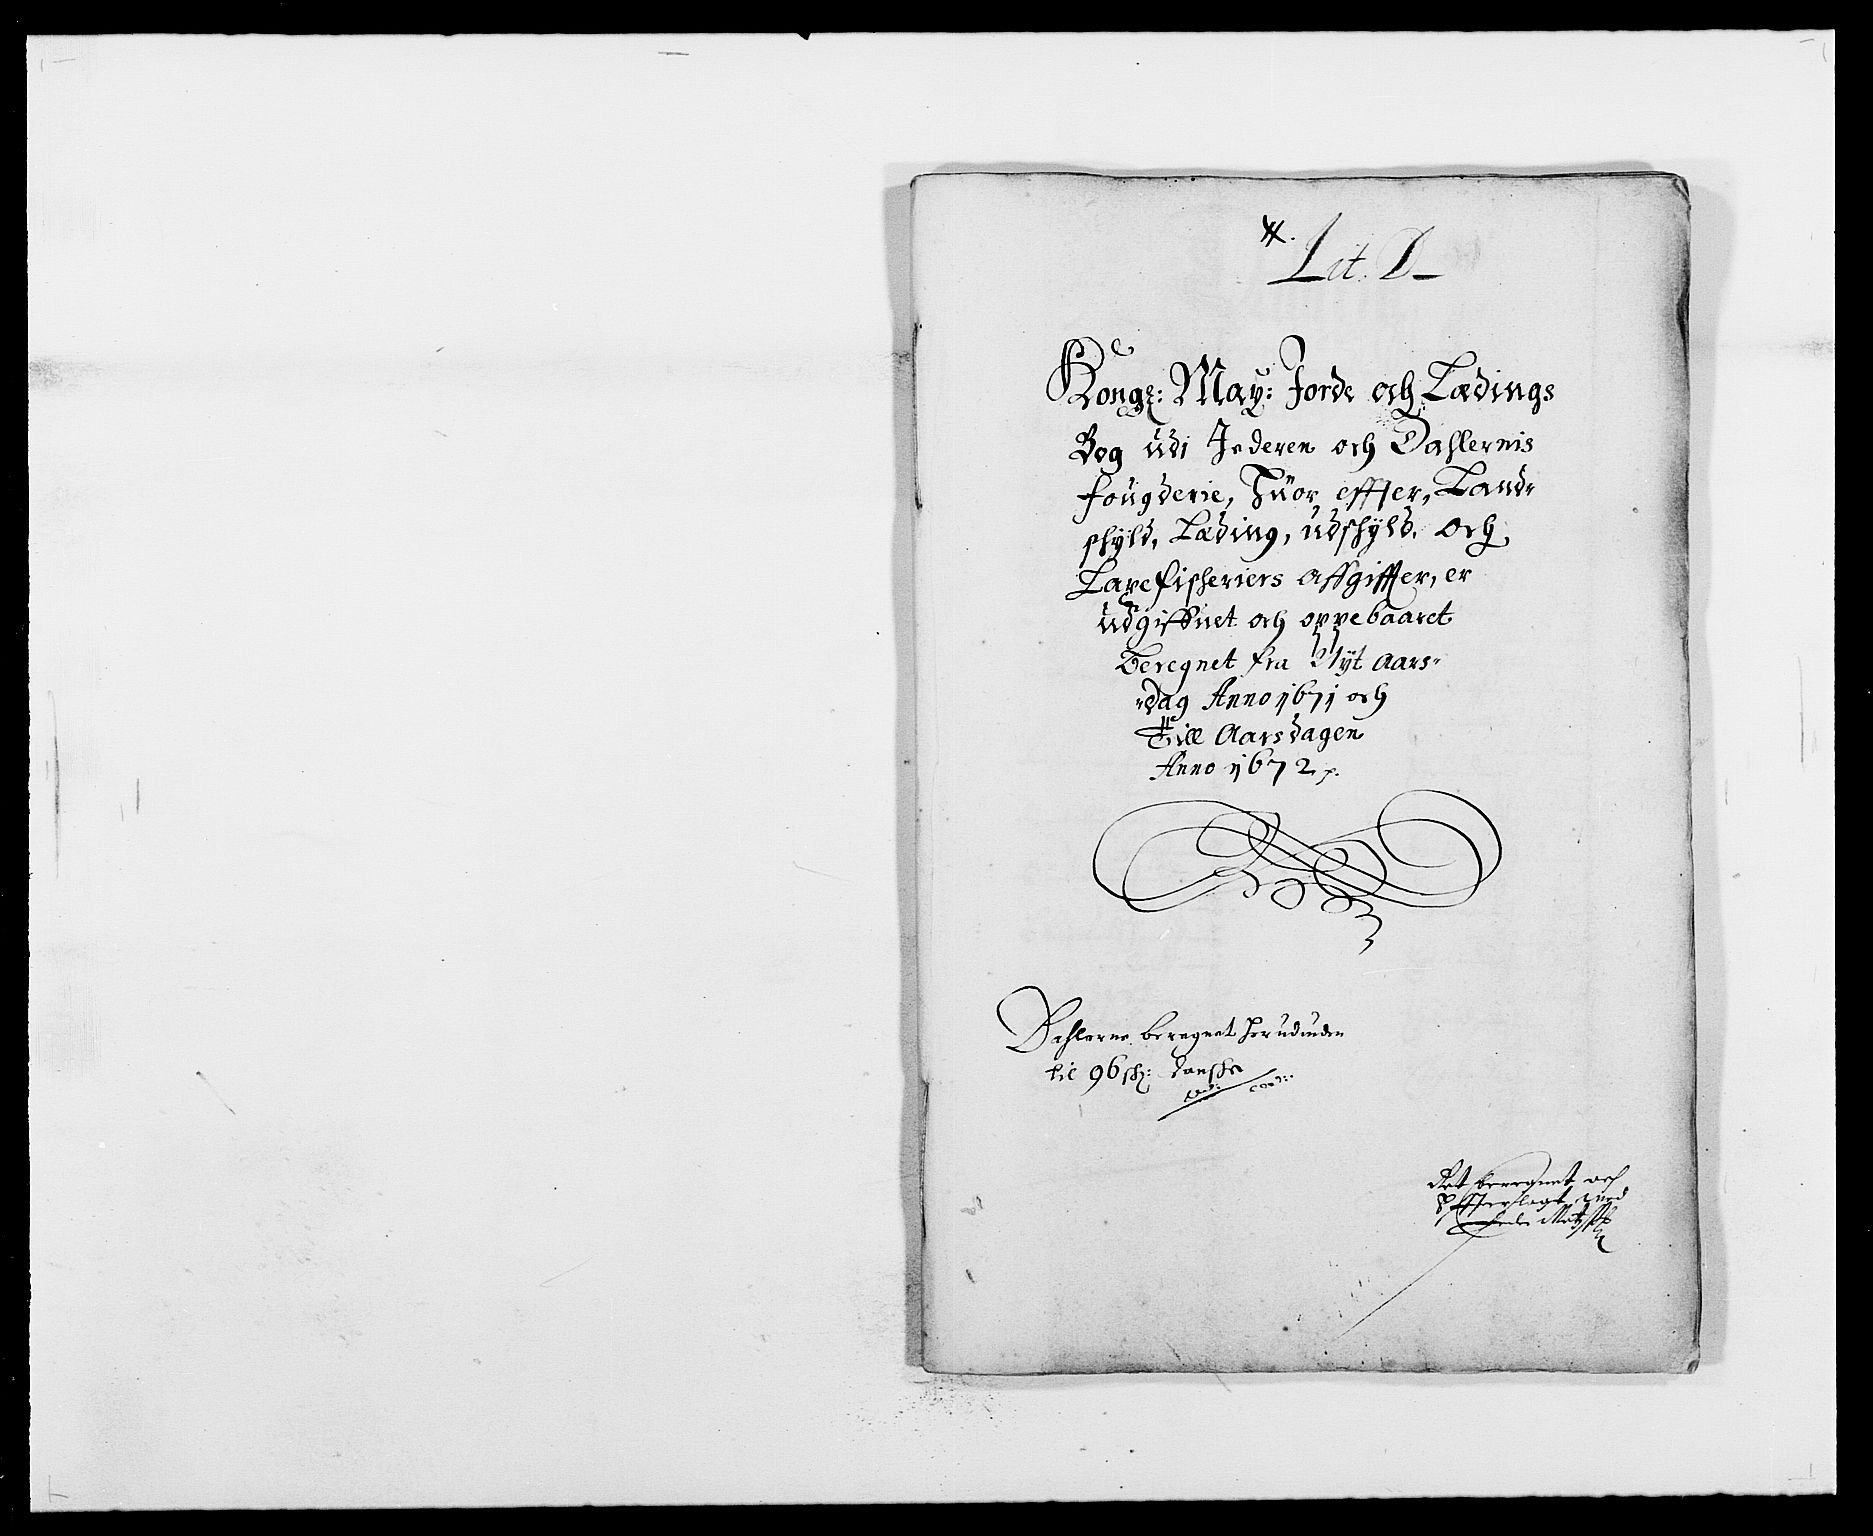 Lit. D
Kongl: May: Jorde och Lædings
Bog udi Jederen och Dahlernis
fougderie, huor effter, Land-
schyld, Læding, udschyld, och
Laxefischeriers affgiffter, er
udgiffuet och oppebaaret
Beregnet fra Nyt aars-
-dag Anno 1671 och
Till Aarsdagen
Anno 1672 p.
Dahlerne beregnet herudinden
til 96 sch: danske
Ret beregnet och
effterlagt med